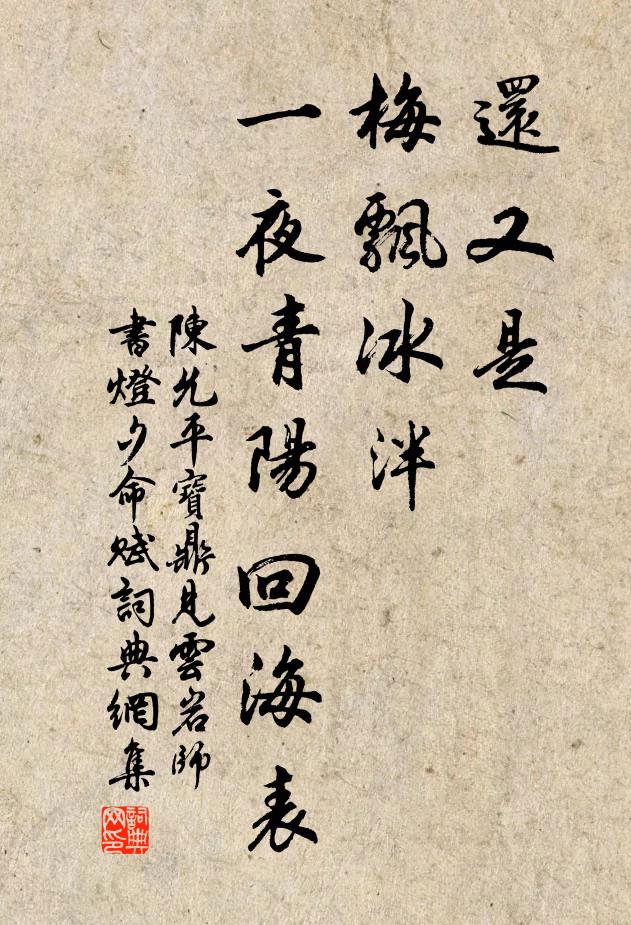 還又是
梅飄冰泮
一夜青陽回海表
陳允平寶鼎見雲岩師
書燈夕命賦詞典網集
詞典网印